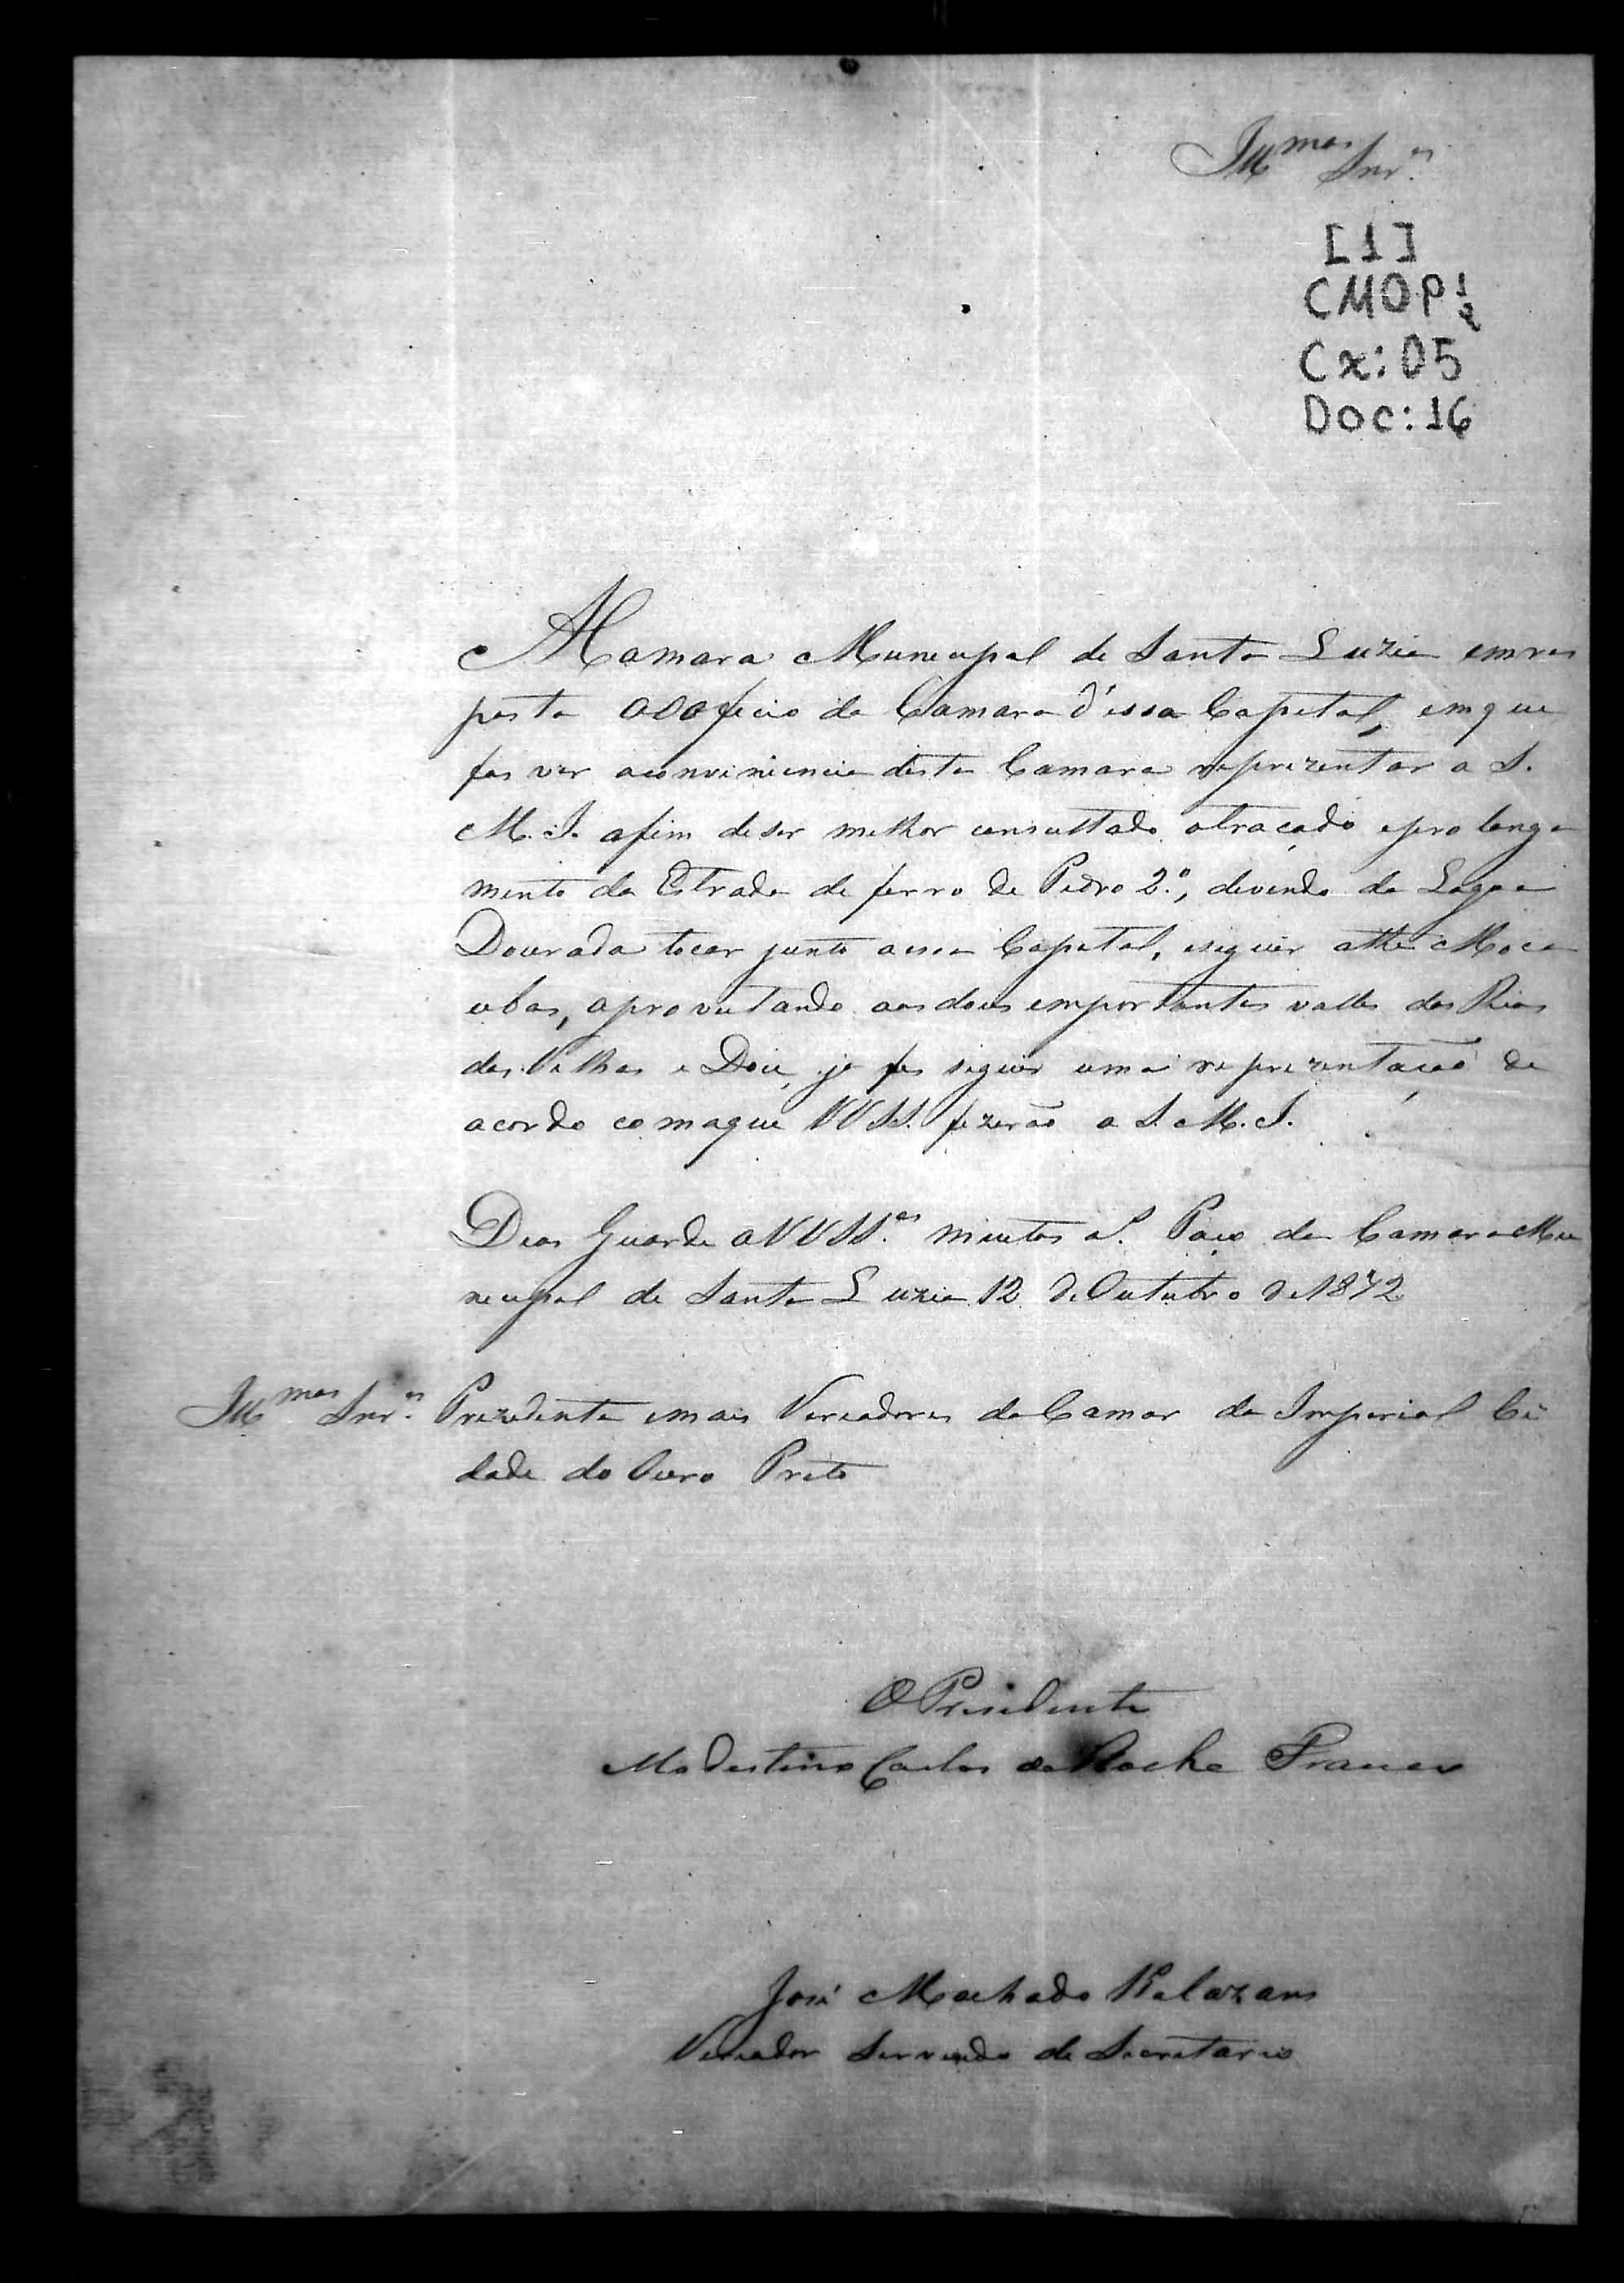 Ill.mos Snr.es
[1]
CMOP 1/2
Cx: 05
Doc: 16
A Camara Municipal de Santa Luzia em res
posta ao officio da Camara d'essa Capital, em que
fas ver a conviniencia desta Camara reprezentar a S.
M. I. afim de ser melhor consultado o traçado e prolonga
mento da Estrada de ferro de Pedro 2.º, devendo da Lagoa
Dourada tocar junto a essa Capital, e seguir athe Moca
ubas, aproveitando aos dous importantes valles dos Rios
das Velhas e Doce, ja fes seguir uma reprezentação de
acordo com a que VV SS. fizerão a S. M. I.
Deos Guarde a VV SS.as muitos a.s Paço da Camara Mu
nicipal de Santa Luzia 12 de Outubro de 1872
Ill.mos Snr.es Prezidente e mais Vereadores da Camar da Imperial Ci
dade do Ouro Preto
O Presidente
Modestino Carlos da Rocha Franco
José Machado Kalazans
Vereador servindo de Secretario